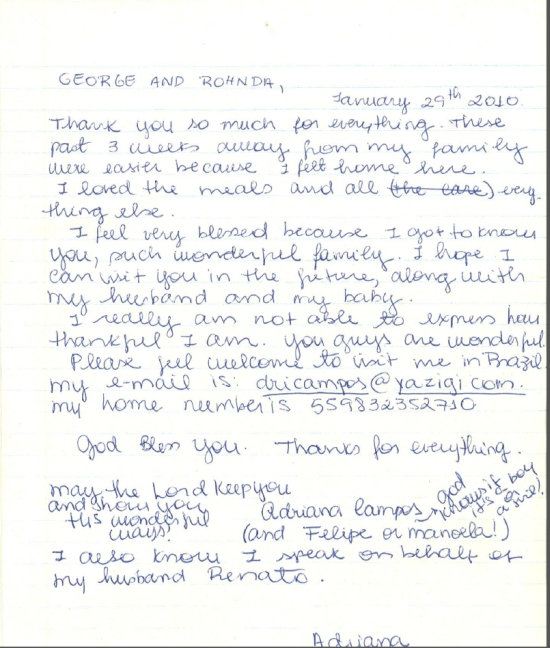 GEORGE AND ROHNDA,
January 29th 2010.
Thank you so much for everything. These
past 3 weeks away from my family
were easier because I felt home here.
I loved the meals and all (the care) every-
thing else.
I feel very blessed because I got to know
you, such wonderful family. I hope I
can visit you in the future, along with
my husband and my baby.
I really am not able to express how
thankful I am. you guys are wonderful.
Please feel welcome to visit me in Brazil.
my e-mail is: dricampos@yazigi.com.
my home number is 559832352710
God Bless You. Thanks for everything.
may the Lord keep you
and show you
His wonderful
ways!
Adriana Campos
(and Felipe or manoela!)
God
knows if boy
or
a girl!
I also know I speak on behalf of
my husband Renato.
Adriana